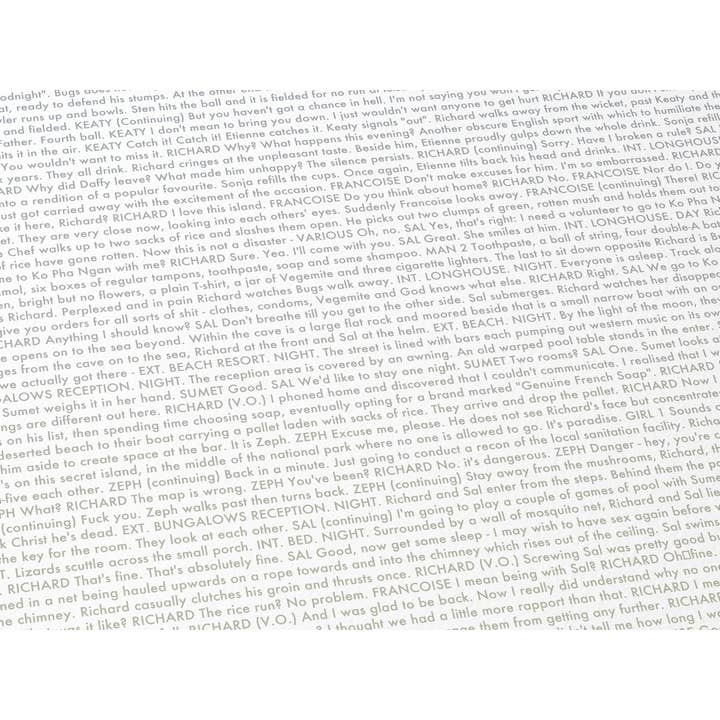 odnight". Bugs does
at, ready to defend his stumps. At the other end
ler runs up and bowls. Sten hits the ball and it is fielded for no run
and fielded. KEATY (Continuing) But you haven't got a chance in hell. I'm not saying you
Father. Fourth ball. KEATY I don't mean to bring you down. I just wouldn't want anyone to get hurt RICHARD If you don't
its it in the air. KEATY Catch it! Catch it! Etienne catches it. Keaty signals "out". Richard walks away from the wicket, past Keaty and
You wouldn't want to miss it. RICHARD Why? What happens this evening? Another obscure English sport with which to humiliate the
k years. They all drink. Richard cringes at the unpleasant taste. Beside him, Etienne proudly gulps down the whole drink. Sonja refill
ARD Why did Daffy leave? What made him unhappy? The silence persists. RICHARD (continuing) Sorry. Have I broken a rule? SAL
into a rendition of a popular favourite. Sonja refills the cups. Once again, Etienne tills back his head and drinks. INT. LONGHOUSE
ust got carried away with the excitement of the occasion. FRANCOISE Don't make excuses for him. I'm so embarrassed. RICHARD
ke it here, Richard? RICHARD I love this island. FRANCOISE Do you think about home? RICHARD No. FRANCOISE Nor do I. Do y
et. They are very close now, looking into each others' eyes. Suddenly Francoise looks away. FRANCOISE (continuing) There! RIC
e Chef walks up to two sacks of rice and slashes them open. He picks out two clumps of green, rotten mush and holds them out to
of rice have gone rotten. Now this is not a disaster - VARIOUS Oh, no. SAL Yes, that's right: I need a volunteer to go to Ko Pha N
ne to Ko Pha Ngan with me? RICHARD Sure. Yea. I'll come with you. SAL Great. She smiles at him. INT. LONGHOUSE. DAY Rich
mol, six boxes of regular tampons, toothpaste, soap and some shampoo. MAN 2 Toothpaste, a ball of string, four double-A bat
en, bright but no flowers, a plain T-shirt, a jar of Vegemite and three cigarette lighters. The last to sit down opposite Richard is B
s Richard. Perplexed and in pain Richard watches Bugs walk away. INT. LONGHOUSE. NIGHT. Everyone is asleep. Track alo
give you orders for all sorts of shit - clothes, condoms, Vegemite and God knows what else. RICHARD Right. SAL We go to Ko
CHARD Anything I should know? SAL Don't breathe till you get to the other side. Sal submerges. Richard watches her disappe
e opens on to the sea beyond. Within the cave is a large flat rock and moored beside that is a small narrow boat with an
ges from the cave on to the sea, Richard at the front and Sal at the helm. EXT. BEACH. NIGHT. By the light of the moon, the
we actually got there - EXT. BEACH RESORT. NIGHT. The street is lined with bars each pumping out western music on its ow
GALOWS RECEPTION. NIGHT. The reception area is covered by an awning. An old warped pool table stands in the enter.
Sumet weighs it in her hand. SUMET Good. SAL We'd like to stay one night. SUMET Two rooms? SAL One. Sumet looks a
ings are different out here. RICHARD (V.O.) I phoned home and discovered that I couldn't communicate. I realised that I w
s on his list, then spending time choosing soap, eventually opting for a brand marked "Genuine French Soap". RICHARD
deserted beach to their boat carrying a pallet laden with sacks of rice. They arrive and drop the pallet. RICHARD Now I
him aside to create space at the bar. It is Zeph. ZEPH Excuse me, please. He does not see Richard's face but concentrate
's on this secret island, in the middle of the national park where no one is allowed to go. It's paradise. GIRL 1 Sounds
-five each other. ZEPH (continuing) Back in a minute. Just going to conduct a recon of the local sanitation facility. Richa
PH What? RICHARD The map is wrong. ZEPH You've been? RICHARD No. it's dangerous. ZEPH Danger - hey, you're
(continuing) Fuck you. Zeph walks past then turns back. ZEPH (continuing) Stay away from the mushrooms, Richard, th
k Christ he's dead. EXT. BUNGALOWS RECEPTION. NIGHT. Richard and Sal enter from the steps. Behind them the pa
the key for the room. They look at each other. SAL (continuing) I'm going to play a couple of games of pool with Sumet
T. Lizards scuttle across the small porch. INT. BED. NIGHT. Surrounded by a wall of mosquito net, Richard and Sal lie
. RICHARD That's fine. That's absolutely fine. SAL Good, now get some sleep - I may wish to have sex again before w
med in a net being hauled upwards on a rope towards and into the chimney which rises out of the ceiling. Sal swims
e chimney. Richard casually clutches his groin and thrusts once. RICHARD (V.O.) Screwing Sal was pretty good bu
RICHARD The rice run? No problem. FRANCOISE I mean being with Sal? RICHARD Oh fine.
it like? RICHARD (V.O.) And I was glad to be back. Now I really did understand why no one
I thought we had a little more rapport than that. RICHARD I me
them from getting any further. RICHARD
didn't tell me how long I wa